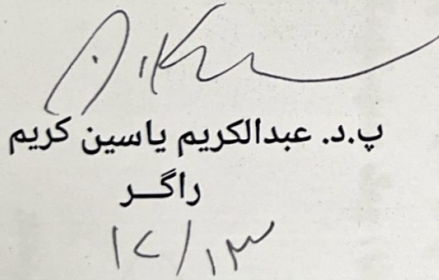 پ.د. عبدالكريم ياسين كريم
راگـــر
١٢/١٣